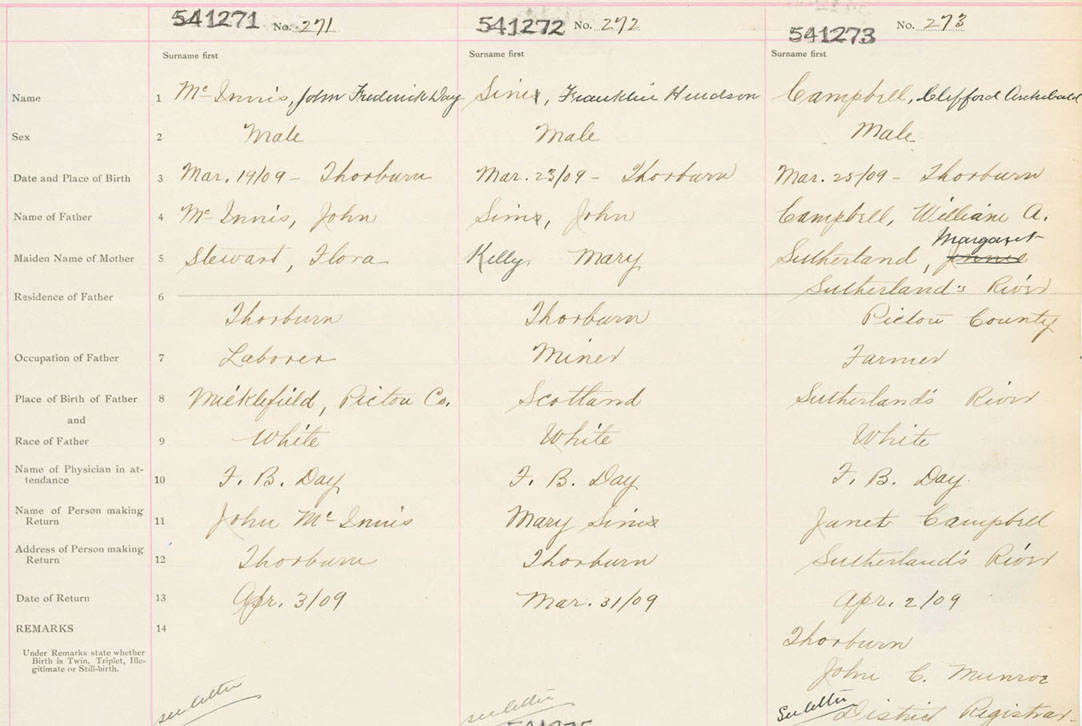 541271 No. 271 541272 No. 272 541273 No. 273
Surname first Surname first Surname first
Name 1 Mc Innis, John Frederick Day Sims, Franklin Hudson Campbell, Clifford Archibald
Sex 2 Male Male Male
Date and Place of Birth 3 Mar. 19/09 - Thorburn Mar. 23/09 - Thorburn Mar. 25/09 - Thorburn
Name of Father 4 Mc Innis, John Sims, John Campbell, William A.
Margaret
Maiden Name of Mother 5 Stewart, Flora Kelly, Mary Sutherland,
Sutherland's River
Residence of Father 6
Thorburn Thorburn Pictou County
Occupation of Father 7 Laborer Miner Farmer
Place of Birth of Father 8 Micklefield, Pictou Co. Scotland Sutherland's River
and
Race of Father 9 White White White
Name of Physician in at-
tendance 10 F. B. Day F. B. Day F. B. Day
Name of Person making
Return 11 John Mc Innis Mary Sims Janet Campbell
Address of Person making
Return 12 Thorburn Thorburn Sutherland's River
Date of Return 13 Apr. 3/09 Mar. 31/09 Apr. 2/09
REMARKS 14 Thorburn
Under Remarks state whether
Birth is Twin, Triplet, Ille-
gitimate or Still-birth.
John C. Munroe
see letter see letter See letter District Registrar